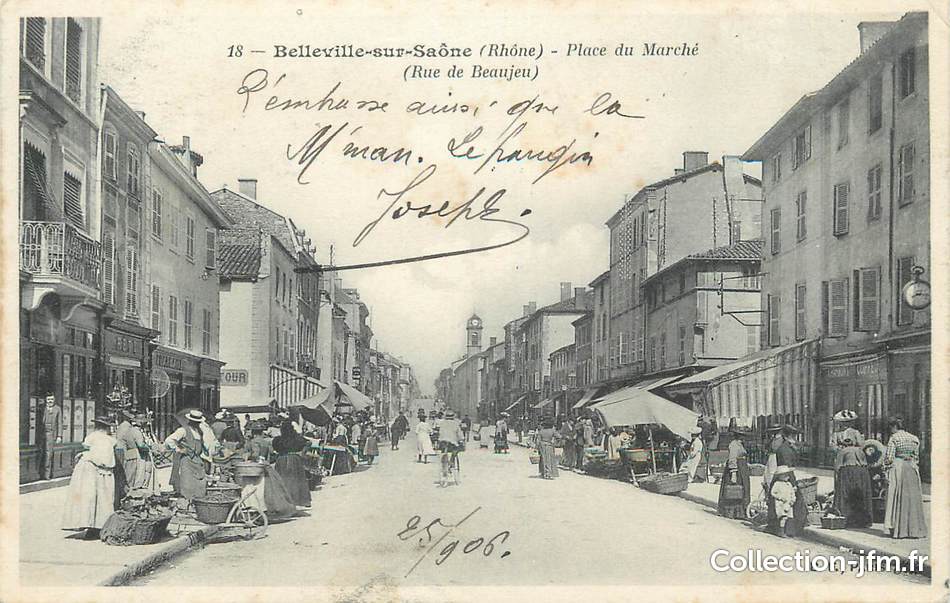 18 — Belleville-sur-Saône (Rhône) - Place du Marché
(Rue de Beaujeu)
L'embrasse ainsi que la
M'man. Le
Joseph.
OUR
25/906.
Collection-jfm.fr